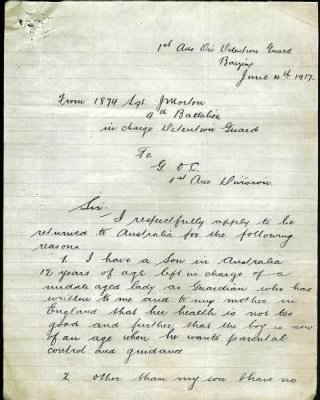 1st Aus Div Detention Guard
June 4th 1917.
From 1874 Sgt J Morton
9th Battalion
in charge Detention Guard
To
G. O. C.
1st Aus Division.
Sir
I respectfully apply to be
returned to Australia for the following
reasons
1. I have a Son in Australia
12 years of age left in charge of a
middle aged lady as Guardian who has
written to me and to my mother in
England that her health is not too
good and further that the boy is now
of an age when he wants parental
control and guidance
2 other than my son I have no